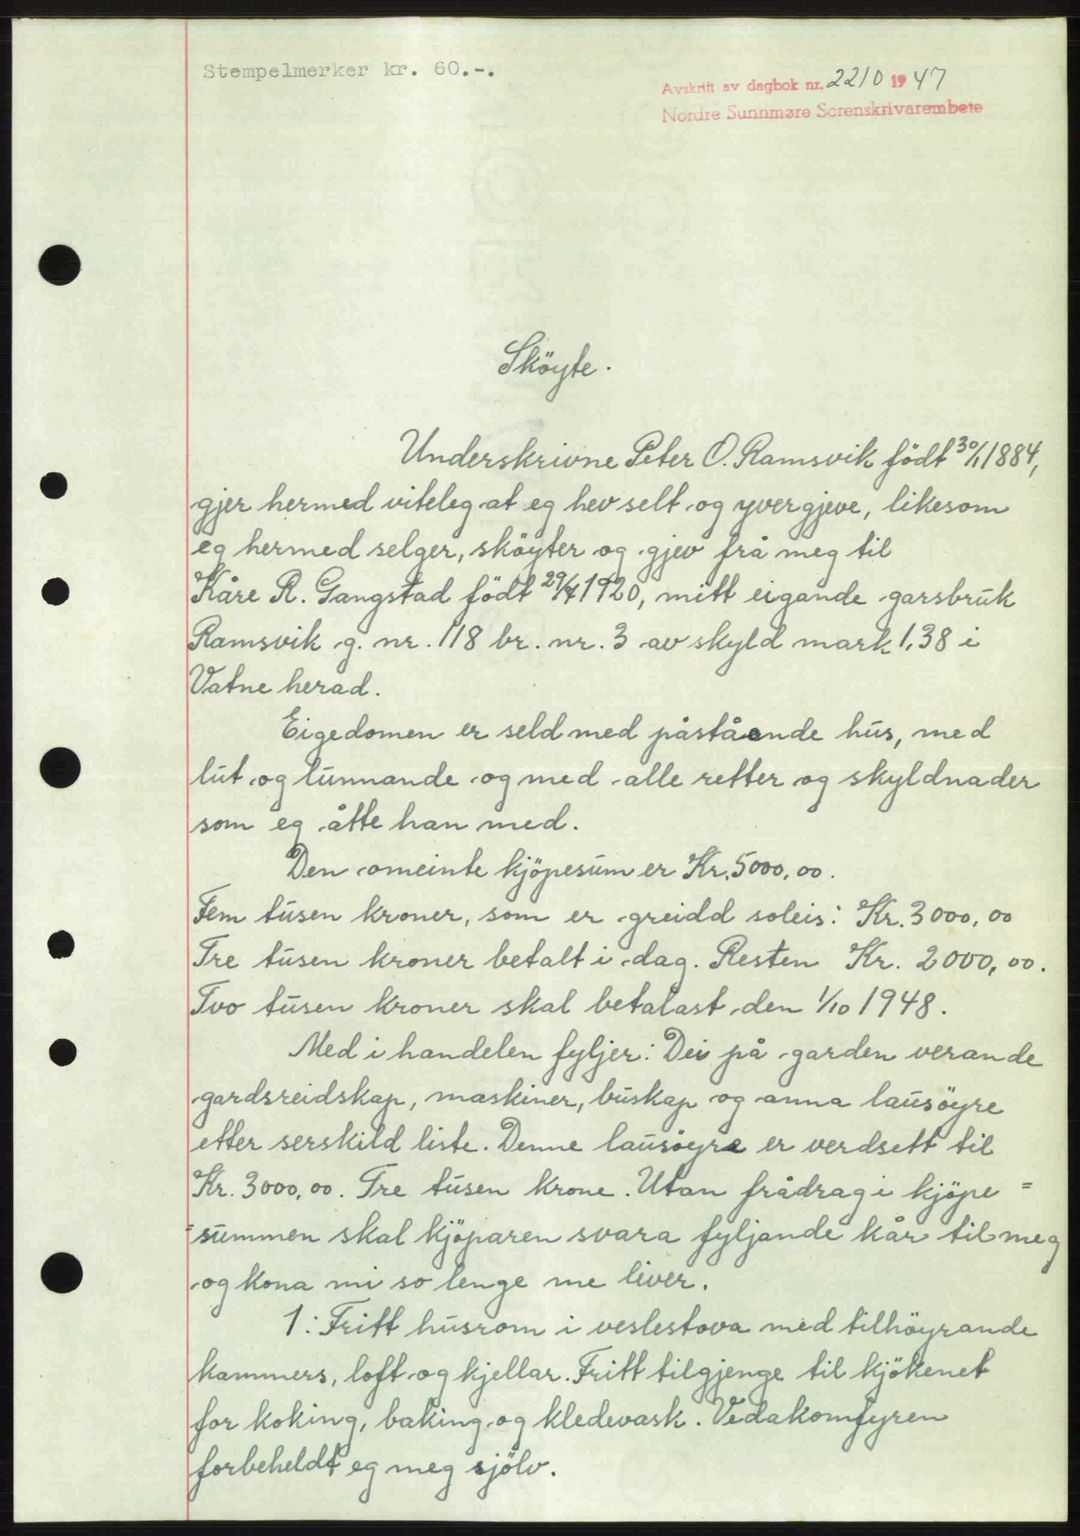 Stempelmerker kr. 60.-.
Avskrift av dagbok nr. 2210 1947
Nordre Sunnmøre Sorenskrivarembete
Sköyte.
Underskrivne Peter O. Ramsvik födt 30/1 1884,
gjer hermed viteleg at eg hev selt og yvergjeve, likesom
eg hermed selger, sköyter og gjev frå meg til
Kåre R. Gangstad födt 29/7 1920, mitt eigande garsbruk
Ramsvik g. nr. 118 br. nr. 3 av skyld mark 1,38 i
Vatne herad.
Eigedomen er seld med påståande hus, med
lut og lunnande og med alle retter og skyldnader
som eg åtte han med.
Den omeinte kjöpesum er Kr. 5000,00.
Fem tusen kroner, som er greidd soleis: Kr. 3000,00
Tre tusen kroner betalt i dag. Resten Kr. 2000,00.
Tvo tusen kroner skal betalast den 1/10 1948.
Med i handelen fyljer: Dei på garden verande
gardsreidskap, maskiner, buskap og anna lausöyre
etter serskild liste. Denne lausöyre er verdsett til
Kr. 3000,00. Tre tusen krone. Utan frådrag i kjöpe=
=summen skal kjöparen svara fyljande kår til meg
og kona mi so lenge me liver.
1: Fritt husrom i veslestova med tilhöyrande
kammers, loft og kjellar. Fritt tilgjenge til kjökenet
for koking, baking og kledevask. Vedakomfyren
forbeheldt eg meg sjölv.